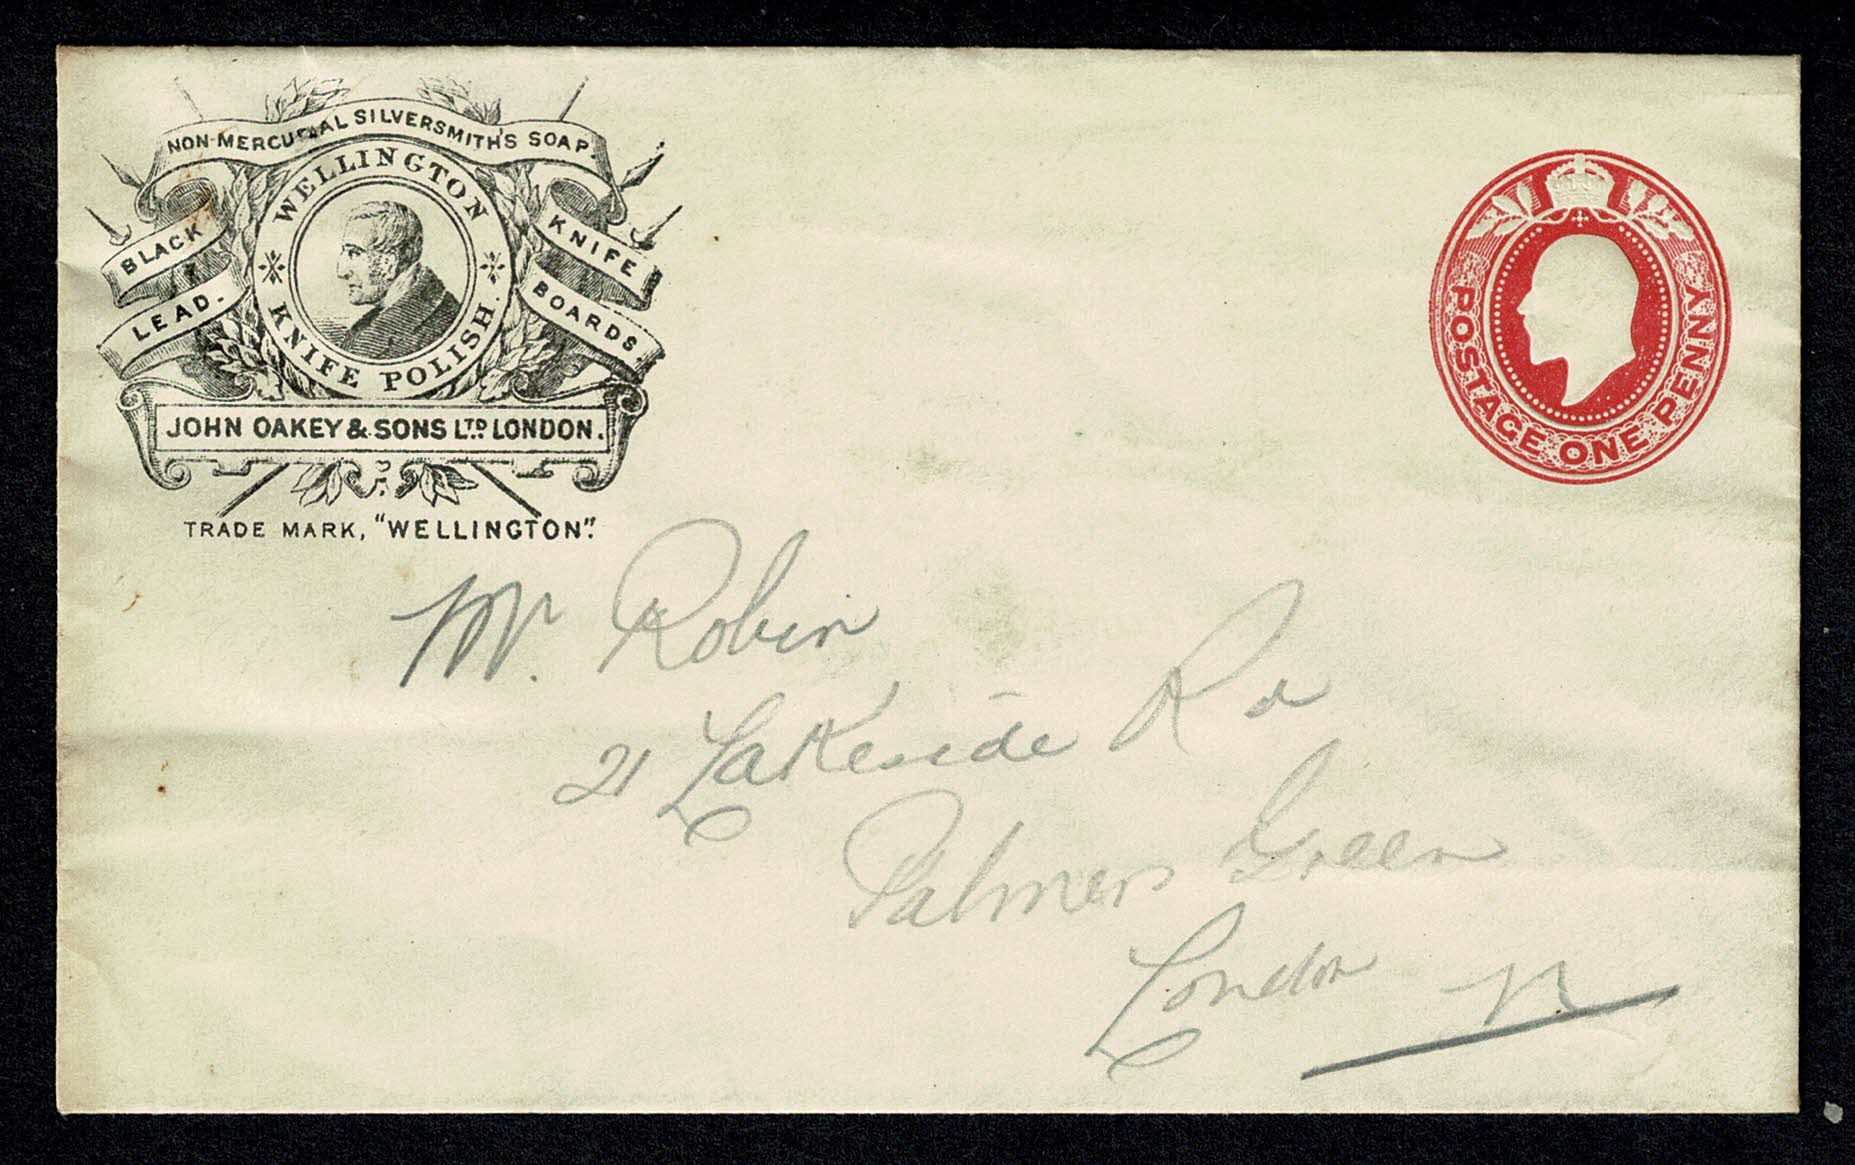 NON-MERCURIAL SILVERSMITH'S SOAP.
WELLINGTON
KNIFE POLISH.
BLACK
LEAD.
KNIFE
BOARDS.
JOHN OAKEY & SONS LTD LONDON.
TRADE MARK, "WELLINGTON".
POSTAGE ONE PENNY
Mr. Robin
21 Lakeside Rd
Palmers Green
London N